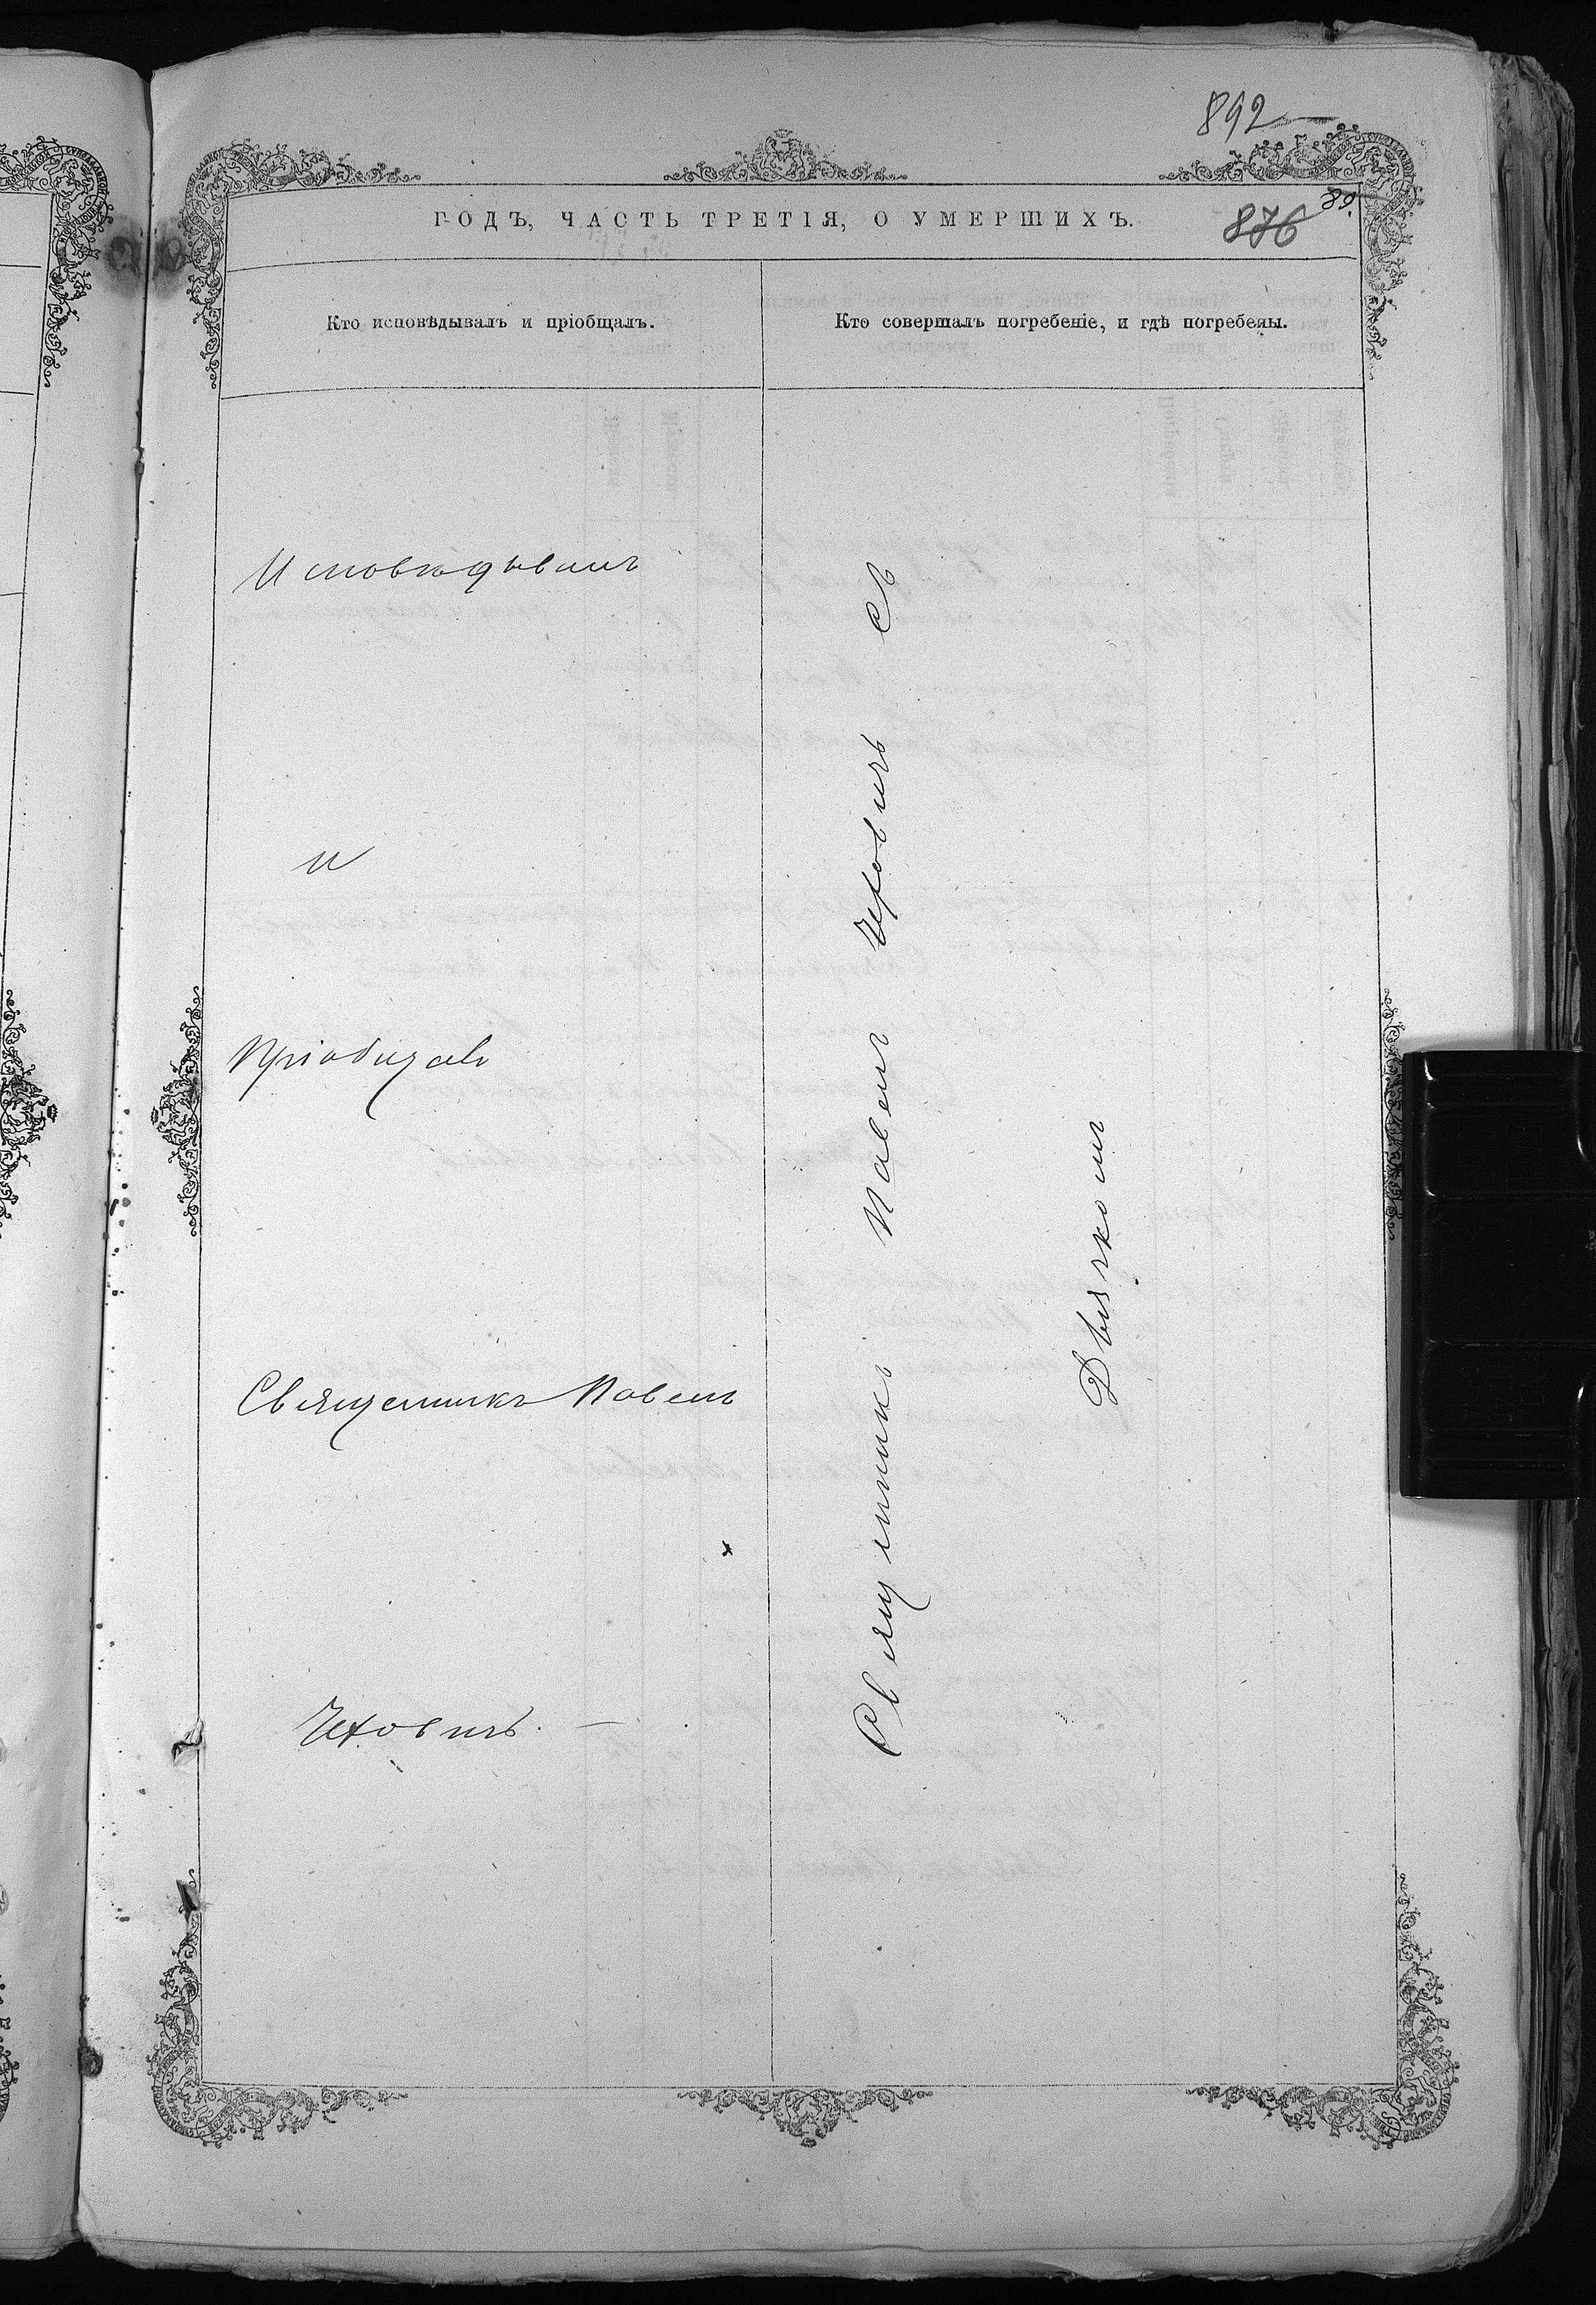 892
89.
876
ГОДЪ, ЧАСТЬ ТРЕТІЯ, О УМЕРШИХЪ.
Кто исповѣдывалъ и пріобщалъ.
Кто совершалъ погребеніе, и гдѣ погребены.
Исповѣдывалъ
и
Пріобщалъ
Священникъ Павелъ
Чеховичъ.
Священникъ Павелъ Чеховичъ съ
Дьячкомъ